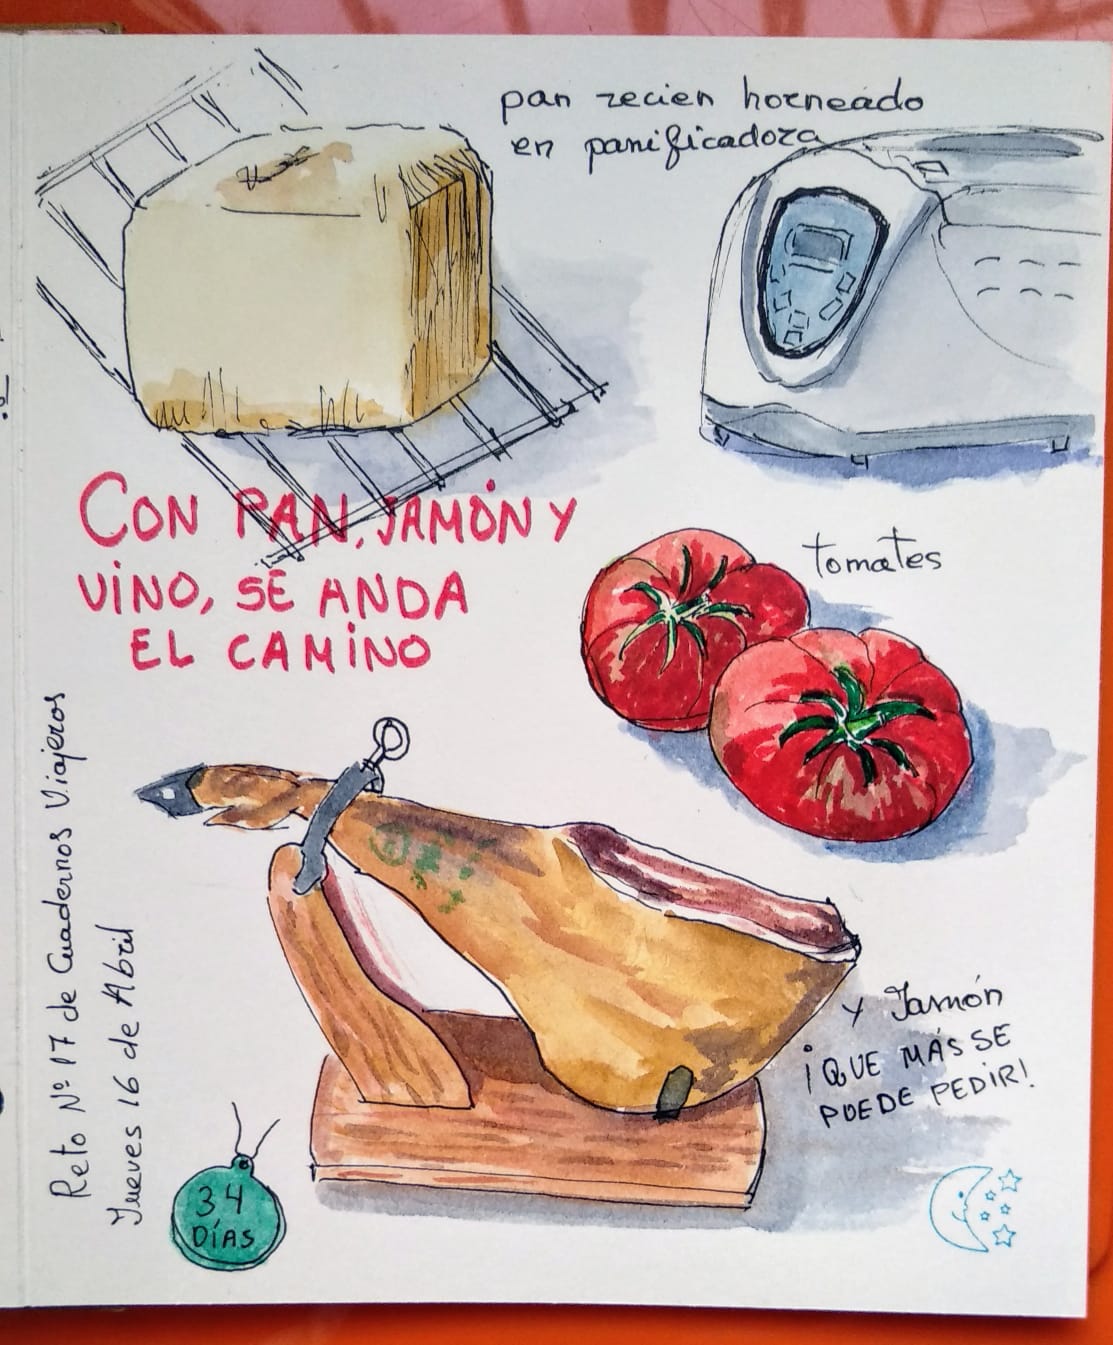 pan recien horneado
en panificadora
CON PAN, JAMÓN Y
VINO, SE ANDA
EL CAMINO
tomates
Y Jamón
¡QUE MÁS SE
PUEDE PEDIR!
Reto Nº 17 de Cuadernos Viajeros
Jueves 16 de Abril
34
DÍAS